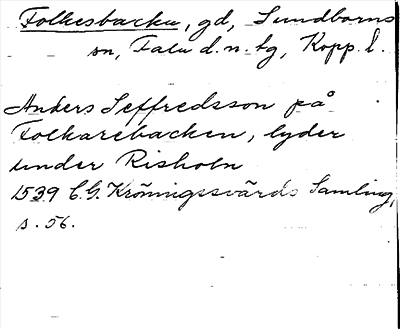 Folkesbacka, gd, Sundborns
sn, Falu d.n. tg, Kopp. l.
Anders Seffredsson på
Folkarebacken, lyder
under Risholn
1539 C.G. Kröningssvärds Samling,
s. 56.